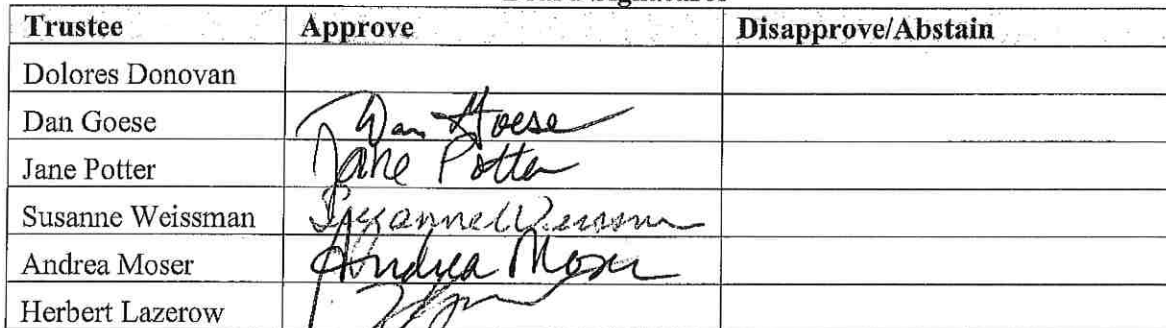 Trustee Approve Disapprove/Abstain
Dolores Donovan
Dan Goese Dan Goese
Jane Potter Jane Potter
Susanne Weissman Suzanne Weissman
Andrea Moser Andrea Moser
Herbert Lazerow